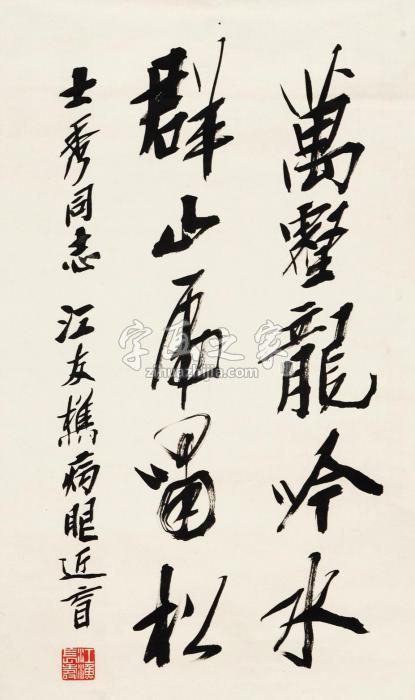 萬壑龍吟水
群山虎嘯松
士秀同志 江友樵病眼近盲
字画之家
zihuazhijia.com